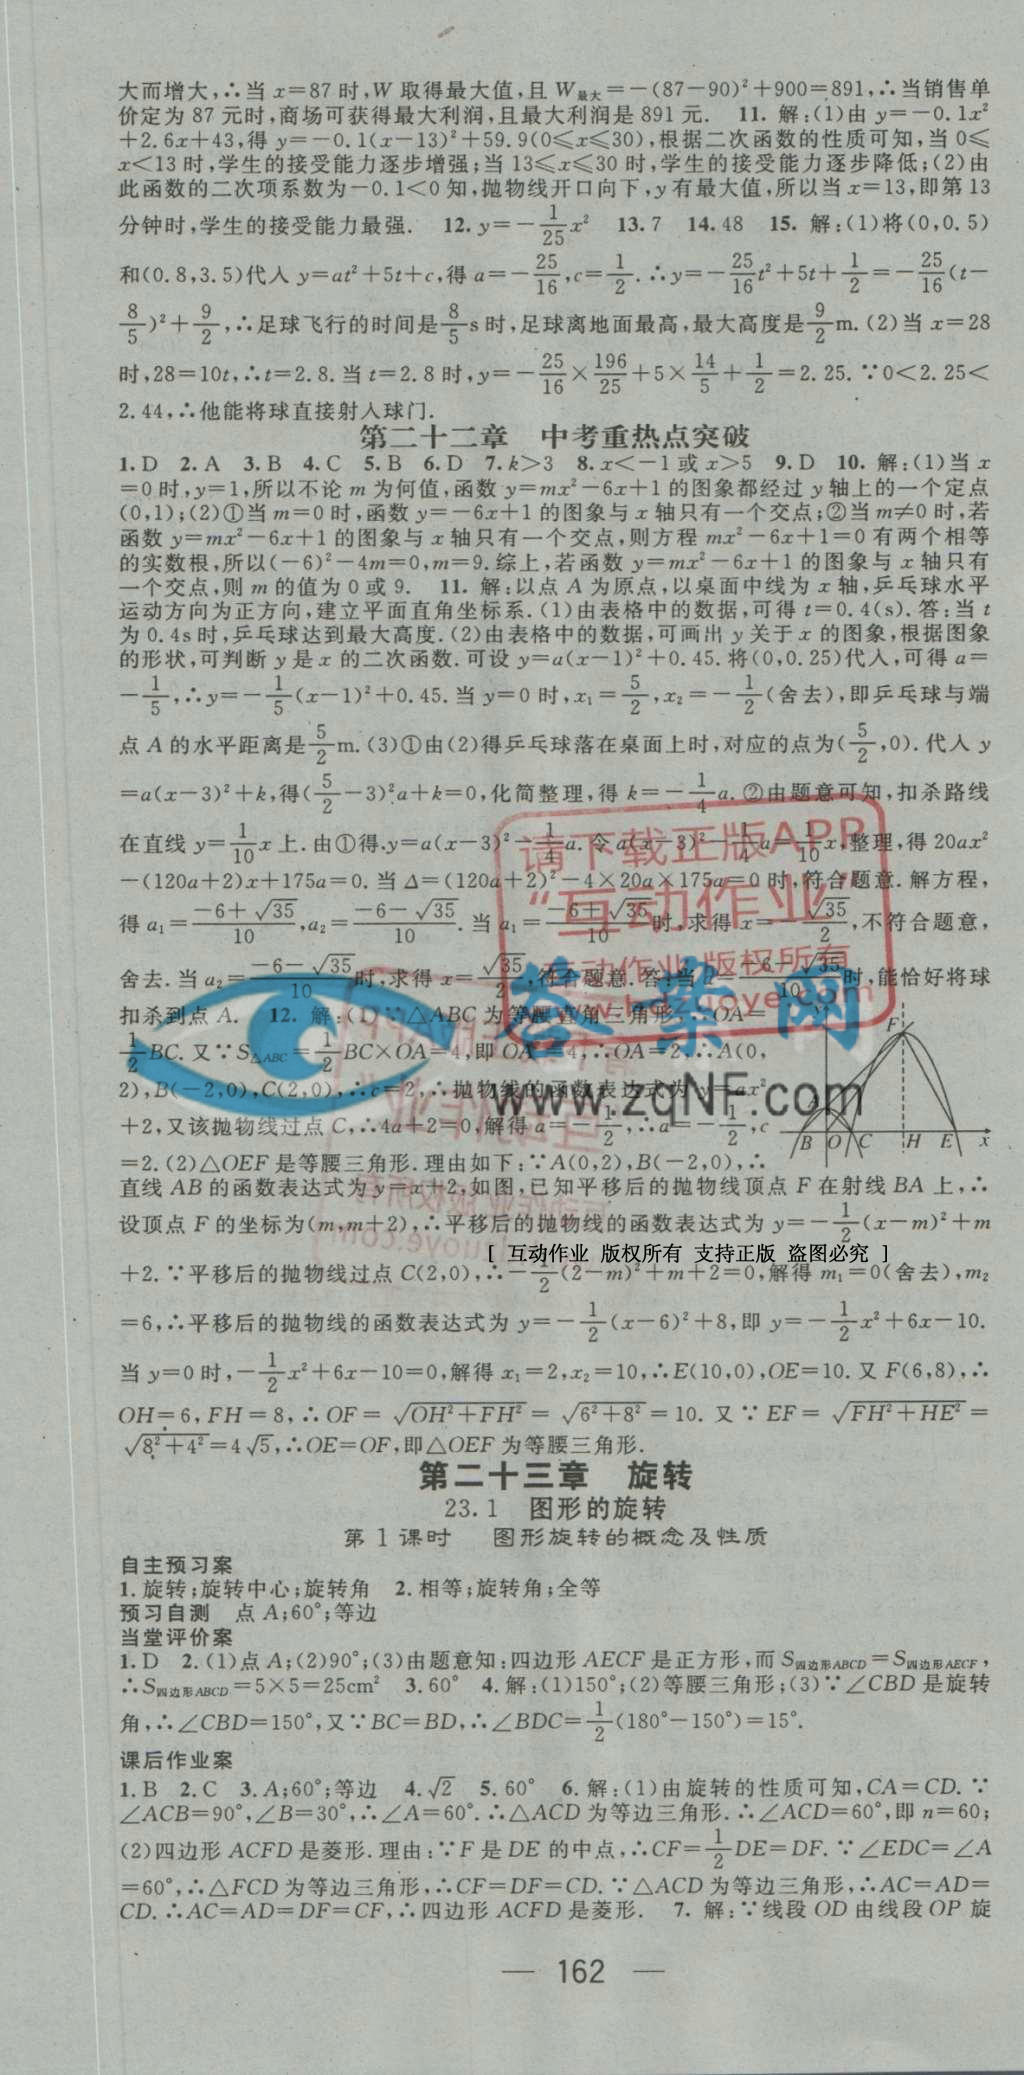 大而增大,∴当 x=87 时,W 取得最大值,且 W最大=-(87-90)²+900=891,∴当销售单
价定为 87 元时,商场可获得最大利润,且最大利润是 891 元. 11. 解:(1)由 y=-0.1x²
+2.6x+43,得 y=-0.1(x-13)²+59.9(0≤x≤30),根据二次函数的性质可知,当 0≤
x<13 时,学生的接受能力逐步增强;当 13≤x≤30 时,学生的接受能力逐步降低;(2)由
此函数的二次项系数为-0.1<0 知,抛物线开口向下,y 有最大值,所以当 x=13,即第 13
分钟时,学生的接受能力最强. 12. y=-1/25x² 13. 7 14. 48 15. 解:(1)将(0,0.5)
和(0.8,3.5)代入 y=at²+5t+c,得 a=-25/16,c=1/2.∴y=-25/16t²+5t+1/2=-25/16(t-
8/5)²+9/2,∴足球飞行的时间是8/5s 时,足球离地面最高,最大高度是9/2m.(2)当 x=28
时,28=10t,∴t=2.8.当 t=2.8 时,y=-25/16×196/25+5×14/5+1/2=2.25.∵0<2.25<
2.44,∴他能将球直接射入球门.
第二十二章 中考重热点突破
1. D 2. A 3. B 4. C 5. B 6. D 7. k>3 8. x<-1 或 x>5 9. D 10. 解:(1)当 x
=0 时,y=1,所以不论 m 为何值,函数 y=mx²-6x+1 的图象都经过 y 轴上的一个定点
(0,1);(2)①当 m=0 时,函数 y=-6x+1 的图象与 x 轴只有一个交点;②当 m≠0 时,若
函数 y=mx²-6x+1 的图象与 x 轴只有一个交点,则方程 mx²-6x+1=0 有两个相等
的实数根,所以(-6)²-4m=0,m=9.综上,若函数 y=mx²-6x+1 的图象与 x 轴只有
一个交点,则 m 的值为 0 或 9. 11. 解:以点 A 为原点,以桌面中线为 x 轴,乒乓球水平
运动方向为正方向,建立平面直角坐标系.(1)由表格中的数据,可得 t=0.4(s).答:当 t
为 0.4s 时,乒乓球达到最大高度.(2)由表格中的数据,可画出 y 关于 x 的图象,根据图象
的形状,可判断 y 是 x 的二次函数.可设 y=a(x-1)²+0.45.将(0,0.25)代入,可得 a=
-1/5,∴y=-1/5(x-1)²+0.45.当 y=0 时,x₁=5/2,x₂=-1/2(舍去),即乒乓球与端
点 A 的水平距离是5/2m.(3)①由(2)得乒乓球落在桌面上时,对应的点为(5/2,0).代入 y
=a(x-3)²+k,得(5/2-3)²a+k=0,化简整理,得 k=-1/4a.②由题意可知,扣杀路线
在直线 y=1/10x 上.由①得.y=a(x-3)²-1/4a.令 a(x-3)²-1/4a=1/10x,整理,得 20ax²
-(120a+2)x+175a=0.当 Δ=(120a+2)²-4×20a×175a=0 时,符合题意.解方程,
得 a₁=(-6+√35)/10,a₂=(-6-√35)/10.当 a₁=(-6+√35)/10时,求得 x=-√35/2,不符合题意,
舍去.当 a₂=(-6-√35)/10时,求得 x=√35/2,符合题意.答:当 a=(-6-√35)/10时,能恰好将球
扣杀到点 A. 12. 解:(1)∵△ABC 为等腰直角三角形,∴OA=
1/2BC.又∵S△ABC=1/2BC×OA=4,即 OA²=4,∴OA=2,∴A(0,
2),B(-2,0),C(2,0),∴c=2,∴抛物线的函数表达式为 y=ax²
+2,又该抛物线过点 C,∴4a+2=0,解得 a=-1/2,∴a=-1/2,c
=2.(2)△OEF 是等腰三角形.理由如下:∵A(0,2),B(-2,0),∴
y F A B O C H E x
直线 AB 的函数表达式为 y=x+2,如图,已知平移后的抛物线顶点 F 在射线 BA 上,∴
设顶点 F 的坐标为(m,m+2),∴平移后的抛物线的函数表达式为 y=-1/2(x-m)²+m
+2.∵平移后的抛物线过点 C(2,0),∴-1/2(2-m)²+m+2=0,解得 m₁=0(舍去),m₂
=6,∴平移后的抛物线的函数表达式为 y=-1/2(x-6)²+8,即 y=-1/2x²+6x-10.
当 y=0 时,-1/2x²+6x-10=0,解得 x₁=2,x₂=10,∴E(10,0),OE=10.又 F(6,8),∴
OH=6,FH=8,∴OF=√(OH²+FH²)=√(6²+8²)=10.又∵EF=√(FH²+HE²)=
√(8²+4²)=4√5,∴OE=OF,即△OEF 为等腰三角形.
第二十三章 旋转
23.1 图形的旋转
第 1 课时 图形旋转的概念及性质
自主预习案
1. 旋转;旋转中心;旋转角 2. 相等;旋转角;全等
预习自测 点 A;60°;等边
当堂评价案
1. D 2. (1)点 A;(2)90°;(3)由题意知:四边形 AECF 是正方形,而 S四边形ABCD=S四边形AECF,
∴S四边形ABCD=5×5=25cm² 3. 60° 4. 解:(1)150°;(2)等腰三角形;(3)∵∠CBD 是旋转
角,∴∠CBD=150°,又∵BC=BD,∴∠BDC=1/2(180°-150°)=15°.
课后作业案
1. B 2. C 3. A;60°;等边 4. √2 5. 60° 6. 解:(1)由旋转的性质可知,CA=CD.∵
∠ACB=90°,∠B=30°,∴∠A=60°.∴△ACD 为等边三角形.∴∠ACD=60°,即 n=60;
(2)四边形 ACFD 是菱形.理由:∵F 是 DE 的中点,∴CF=1/2DE=DF.∵∠EDC=∠A
=60°,∴△FCD 为等边三角形,∴CF=DF=CD.∵△ACD 为等边三角形,∴AC=AD=
CD.∴AC=AD=DF=CF,∴四边形 ACFD 是菱形. 7. 解:∵线段 OD 由线段 OP 旋
— 162 —
请下载正版APP
“互动作业”
互动作业 版权所有
www.hdzuoye.com
答案网
www.zqNF.com
[ 互动作业 版权所有 支持正版 盗图必究 ]